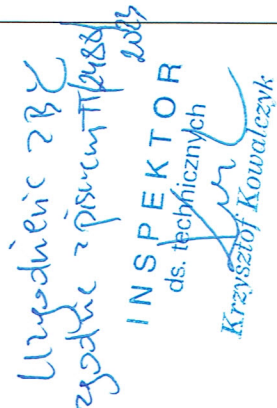 Uzgodnienie z BŻ
zgodnie z pismem TT/2488/
2023
INSPEKTOR
ds. technicznych
Krzysztof Kowalczyk